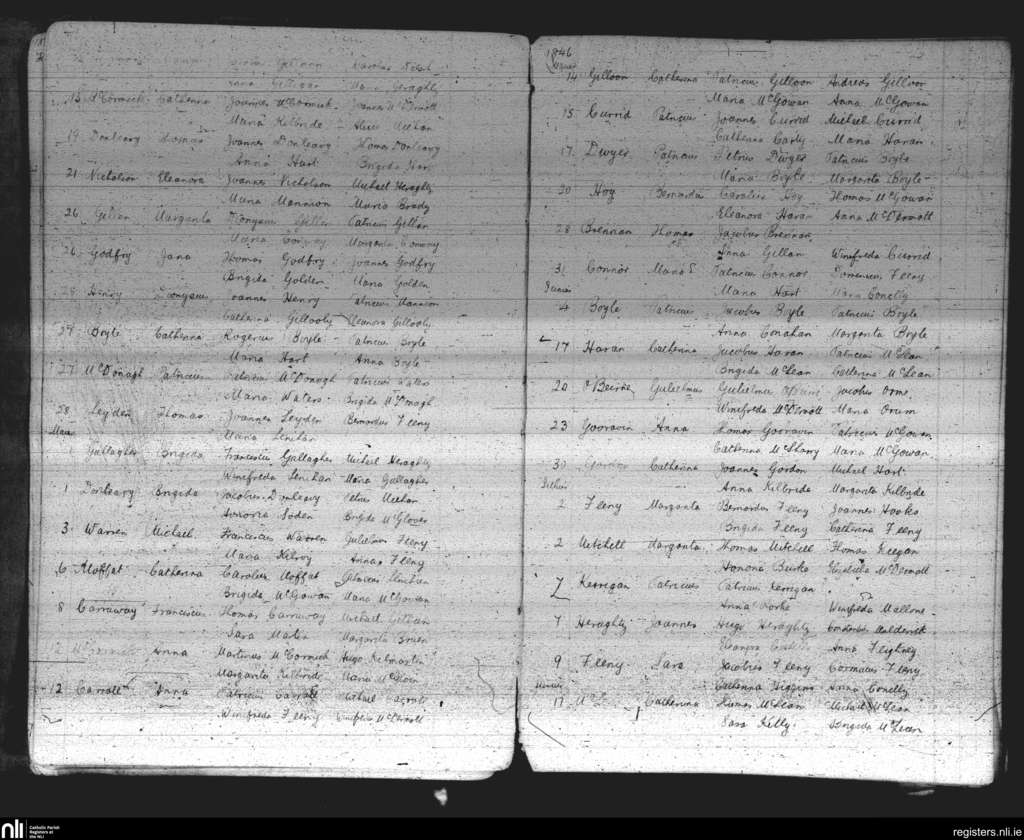 Gillman Carolus
Gilligan Maria Geraghty
15 McCormick Catherina Joannes McCormick Joannes McDermott
Maria Kilbride Alice Meehan
19 Donleavy Thomas Joannes Donleavy Thomas Donleavy
Anna Hart Brigida Hart
21 Nicholson Eleanora Joannes Nicholson Michael Heraghty
Maria Mannion Maria Brady
26 Gillen Margarita Dionysius Gillen Patricius Gillen
Maria Conway Margarita Conway
26 Godfry Jana Thomas Godfry Joannes Godfry
Brigida Golden Maria Golden
28 Henry Dionysius Joannes Henry Patricius Mannion
Catherina Gillooly Eleanora Gillooly
29 Boyle Catherina Rogerius Boyle Patricius Boyle
Maria Hart Anna Boyle
27 McDonagh Patricius Patricius McDonagh Patricius Waters
Maria Waters Brigida McDonagh
28 Leyden Thomas Joannes Leyden Bernardus Feeny
Maria Lenihan
Maius
1 Gallagher Brigida Franciscus Gallagher Michael Heraghty
Winefreda Lenihan Maria Gallagher
1 Donleavy Brigida Jacobus Donleavy Petrus Meehan
Soden Brigida McGlover
3 Warren Michael Franciscus Warren Gulielmus Feeny
Maria Kilroy Anna Feeny
6 Moffat Catherina Carolus Moffat Patricius Lenihan
Brigida McGowan Maria McGowan
8 Carraway Franciscus Thomas Carraway Michael Gethean
Sara Martin Margarita Bruen
12 McCormick Anna Martinus McCormick Hugo Kilmartin
Margarita Kilbride Maria
12 Carroll Anna Patricius Carroll Michael Carroll
Winifreda Feeny Winefreda McDermott
1846
Maius
14 Gilloon Catherina Patricius Gilloon Andreas Gilloon
Maria McGowan Anna McGowan
15 Currid Patricius Joannes Currid Michael Currid
Catherina Carty Maria Haran
17 Dwyer Patricius Petrus Dwyer Patricius Boyle
Maria Boyle Margarita Boyle
20 Hoy Bernarda Carolus Hoy Thomas McGowan
Eleanora Haran Anna McDermott
28 Brennan Thomas Jacobus Brennan
Anna Gillan Winifreda Currid
31 Connor Maria Patricius Connor Dominicus Feeny
Maria Hart Maria Conelly
Junius
4 Boyle Patricius Jacobus Boyle Patricius Boyle
Anna Conahan Margarita Boyle
17 Haran Catherina Jacobus Haran Patricius McLean
Brigida McLean Catherina McLean
20 O'Beirne Gulielmus Gulielmus Jacobus Orme
Winifreda McDermott Maria Orum
23 Gooravin Anna Thomas Gooravin Patricius McGowan
Catherina McSharry Maria McGowan
30 Gordon Catherina Joannes Gordon Michael Hart
Anna Kilbride Margarita Kilbride
Julius
2 Feeny Margarita Bernardus Feeny Joannes Hooks
Brigida Feeny Catherina Feeny
2 Mitchell Margarita Thomas Mitchell Thomas Keegan
Honora Burke McDermott
7 Kerrigan Patricius Patricius Kerrigan
Anna Rorke Winefreda Mallone
7 Heraghty Joannes Hugo Heraghty
Eleanora Anna Feighney
9 Feeny Sara Jacobus Feeny Cormacus Feeny
Catherina Higgins Anna Conelly
17 Catherina Thomas McLean Michael McLean
Sara Kelly Brigida McLean
nli
Catholic Parish
Registers at
the NLI
registers.nli.ie